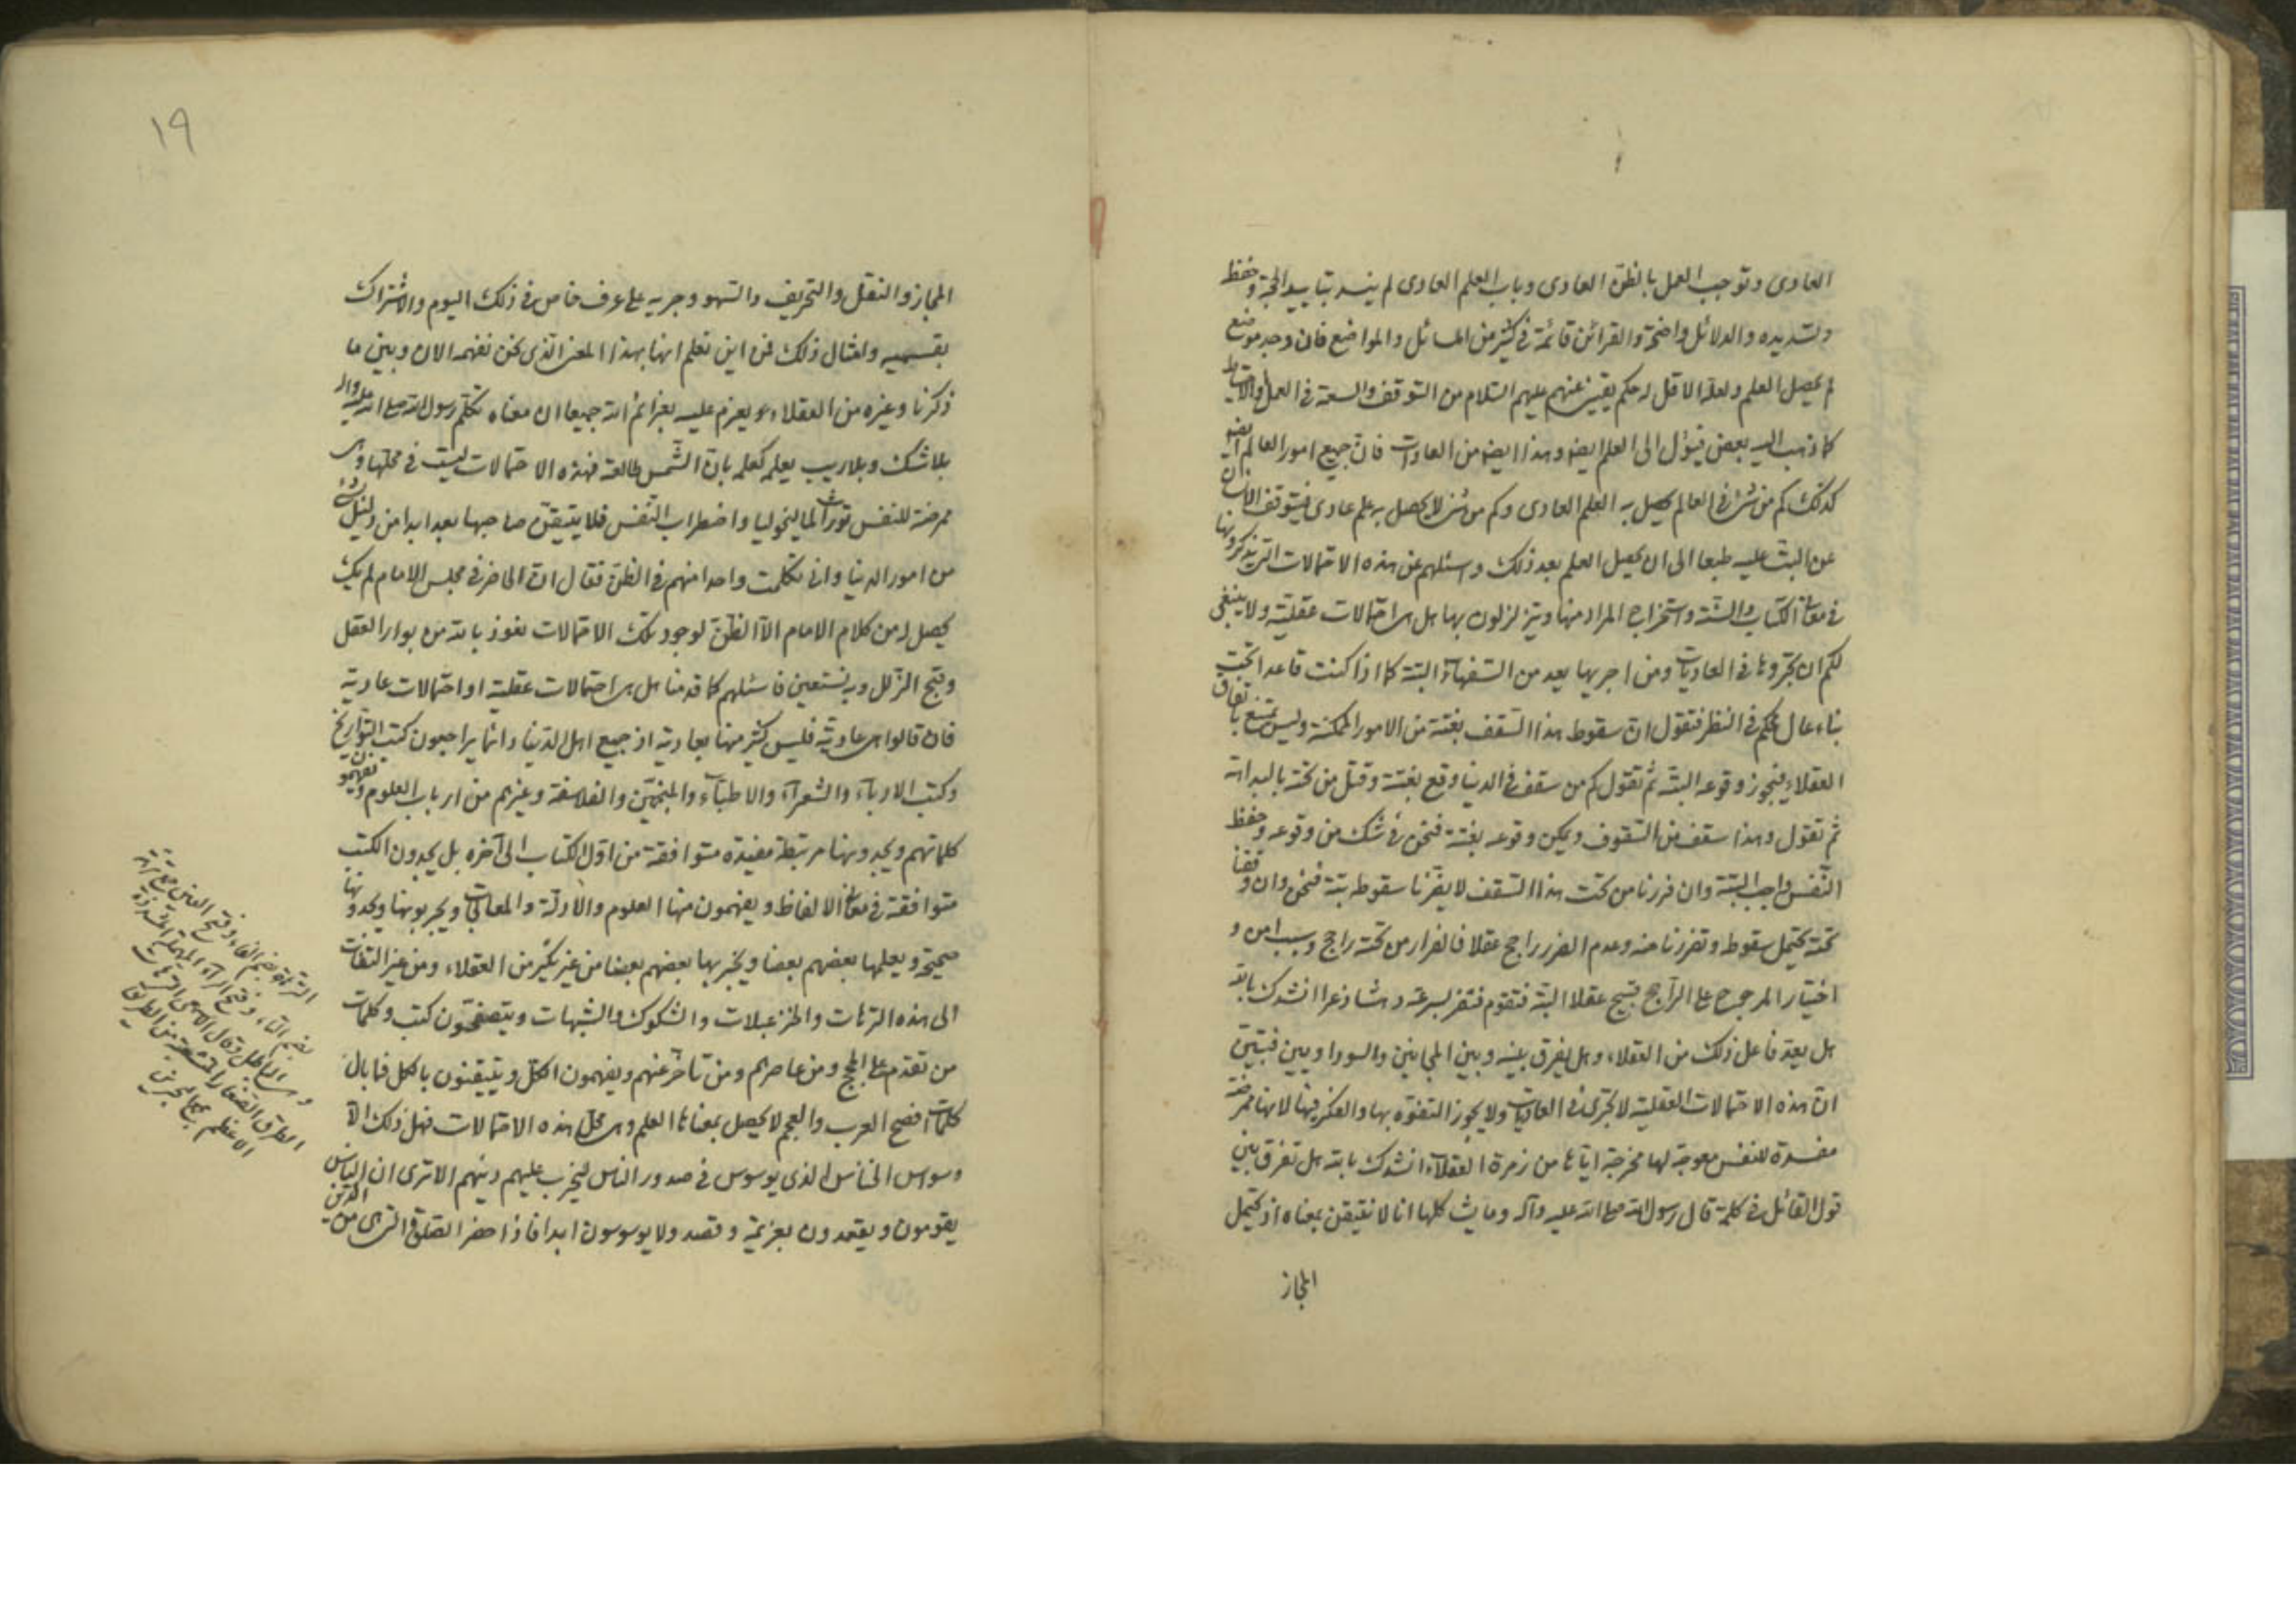 العادى وتوجب العمل بالظن العادى وباب العلم العادى لم ينسد بتاييد الحجة وحفظ
وتسديده والدلائل واضحة والقرائن قائمة فى كثير من المسائل والمواضع فان وجد موضع
لم يحصل العلم ولعله الاقل له حكم يقينى عنهم عليهم السلام من التوقف والسعة فى العمل والاحتياط
كما ذهب اليه بعض فيؤل الى العلم ايضه وهذا ايضه من العادات فان جميع امور العالم ايضه
كذلك كم من شئ فى العالم يحصل به العلم العادى وكم من شئ لا يحصل به علم عادى فيتوقف الانسان
عن البت عليه طبعا الى ان يحصل العلم بعد ذلك واسئلهم عن هذه الاحتمالات التى يذكرونها
فى معانى الكتاب والسنة واستخراج المراد منها ويتزلزلون بها هل هى احتمالات عقلية ولا ينبغى
لكم ان تجروها فى العاديات ومن اجريها يعد من السفهاء البتة كما اذا كنت قاعدا تحت
بناء عال محكم فى النظر فتقول ان سقوط هذا السقف بغتة من الامور الممكنة وليس بممتنع باتفاق
العقلاء فيجوز وقوعه البتة ثم تقول كم من سقف فى الدنيا وقع بغتة وقتل من تحته بالبداهة
ثم تقول وهذا سقف من السقوف ويمكن وقوعه بغتة فنحن فى شك من وقوعه وحفظ
النفس واجب البتة وان فررنا من تحت هذا السقف لا يضرنا سقوطه بتة فنحن وان وقفنا
تحته يحتمل سقوطه وتضررنا منه وعدم الضرر راجح عقلا فالفرار من تحته راجح وسبب امن و
اختيار المرجوح على الراجح قبيح عقلا البتة فتقوم فتفر بسرعة وتشاذعرا انشدك بالله
هل يعد فاعل ذلك من العقلاء وهل يفرق بينه وبين المجانين والسوداويين فتبين
ان هذه الاحتمالات العقلية لا تجرى فى العاديات ولا يجوز التفوه بها والفكر فيها لانها ممرضة
مفسدة للنفس معوجة لها مخرجة اياها من زمرة العقلاء انشدك بالله هل تفرق بين
قول القائل فى كلمة قال رسول الله صلى الله عليه وآله وما شئت كلها انا لا نتيقن بمعناه اذ يحتمل
المجاز
١٩
المجاز والنقل والتحريف والسهو وجريه على عرف خاص فى ذلك اليوم والاشتراك
بقسميه وامثال ذلك فمن اين نعلم انها بهذا المعنى الذى نحن نفهمه الان وبين ما
ذكرنا وغيره من العقلاء ويعزم عليه بعزائم الله جميعا ان معناه تكلم رسول الله صلى الله عليه واله
بلا شك وبلا ريب يعلم كعلمه بان الشمس طالعة فهذه الاحتمالات ليست فى محلها وهى
ممرضة للنفس تورث الماليخوليا واضطراب النفس فلا يتيقن صاحبها بعد ابدا من دليل شئ
من امور الدنيا وانى تكلمت واحدا منهم فى الظن فقال ان الحاضر فى مجلس الامام لم يك
يحصل له من كلام الامام الا الظن لوجود تلك الاحتمالات نعوذ بالله من بوار العقل
وقبح الزلل وبه نستعين فاسئلهم كما قدمنا هل هى احتمالات عقلية او احتمالات عادية
فان قالوا هى عادية فليس كثير منها بعادية اذ جميع اهل الدنيا دائما يراجعون كتب التواريخ
وكتب الادباء والشعراء والاطباء والمنجمين والفلاسفة وغيرهم من ارباب العلوم ويفهمون
كلماتهم ويجدونها مرتبطة مفيدة متوافقة من اول الكتاب الى آخره بل يجدون الكتب
متوافقة فى معانى الالفاظ ويفهمون منها العلوم والادلة والمعانى ويجربونها ويجدونها
صحيحة ويعلمها بعضهم بعضا ويخبر بها بعضهم بعضا من غير نكير من العقلاء ومن غير التفات
الى هذه الترهات والخزعبلات والشكوك والشبهات ويتصفحون كتب وكلمات
من تقدم على الحجج ومن عاصرهم ومن تاخر عنهم ويفهمون الكل ويتيقنون بالكل فما بال
كلمات افصح العرب والعجم لا يحصل بمعناها العلم وهى محل هذه الاحتمالات فهل ذلك الا
وسواس الخناس الذى يوسوس فى صدور الناس ليخرب عليهم دينهم الا ترى ان الناس
يقومون ويقعدون بعزيمة وقصد ولا يوسوسون ابدا فاذا حضر الصلوة التى هى من الدين
وفتح الراء المهملة المشددة
وهى الباطل وقال الاصمعى الترهات
الطرق الصغار المتشعبة من الطريق
الاعظم مجمع البحرين